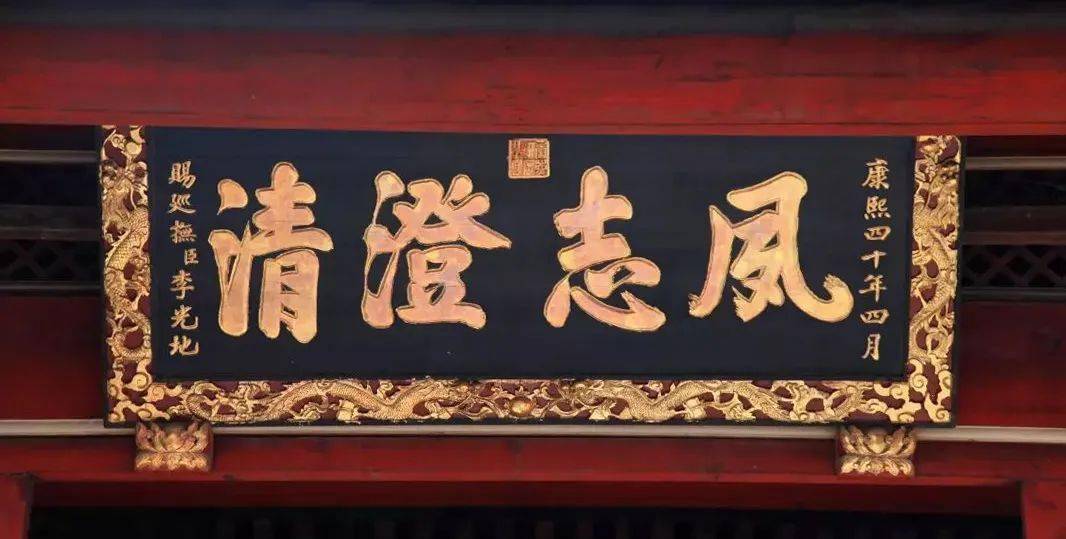 康熙四十年四月
夙志澄清
賜巡撫臣李光地